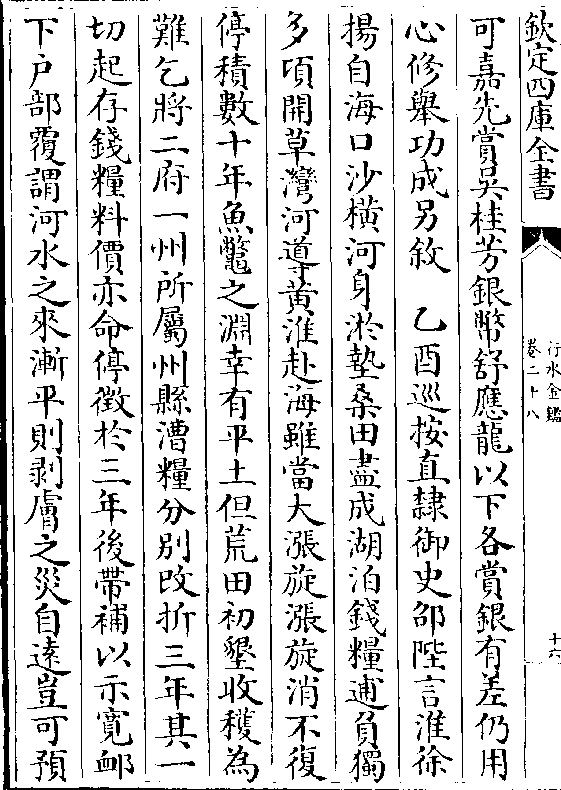 欽定四庫全書
行水金鑑
卷二十八
十六
可嘉先賞吳桂芳銀幣舒應龍以下各賞銀有差仍用
心修舉功成另敘　乙酉巡按直隸御史邵陛言淮徐
揚自海口沙橫河身淤墊桑田盡成湖泊錢糧逋負獨
多項開草灣河導黃淮赴海雖當大漲旋漲旋消不復
停積數十年魚鼈之淵幸有平土但荒田初墾收穫為
難乞將二府一州所屬州縣漕糧分別改折三年其一
切起存錢糧料價亦命停徵於三年後帶補以示寬卹
下戶部覆謂河水之來漸平則剥膚之災自遠豈可預